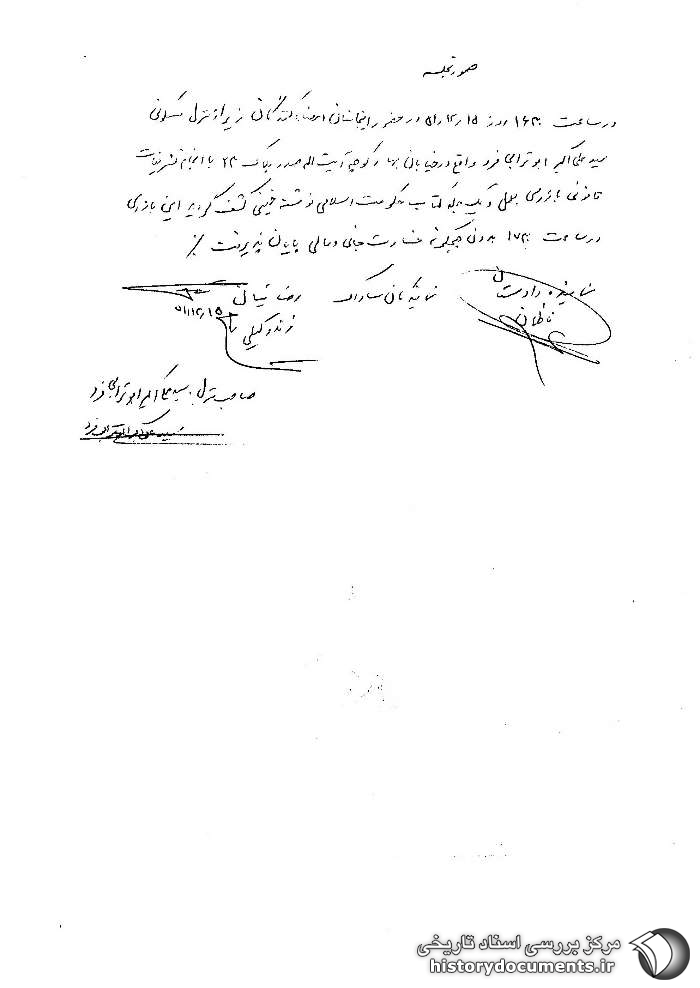 صورتجلسه
در ساعت ۱۶۳۰ روز ۱۵ /۱۲ /۵۱ در حضور اینجانبان امضاءکنندگان زیر از منزل مسکونی
سید علی اکبر ابوترابی فرد واقع در خیابان کوچه آیت اله صدر پلاک ۲۴ با انجام تشریفات
قانونی بازرسی بعمل و یک جلد کتاب حکومت اسلامی نوشته خمینی کشف گردید این بازرسی
در ساعت ۱۷۳۰ بدون هیچگونه خسارت جانی و مالی پایان پذیرفت /
نماینده دادستان نمایندگان ساواک رضا
۵۱/۱۲/۱۵
صاحب منزل. سید علی اکبر ابوترابی فرد
سید علی اکبر ابوترابی فرد
مرکز بررسی اسناد تاریخی
historydocuments.ir